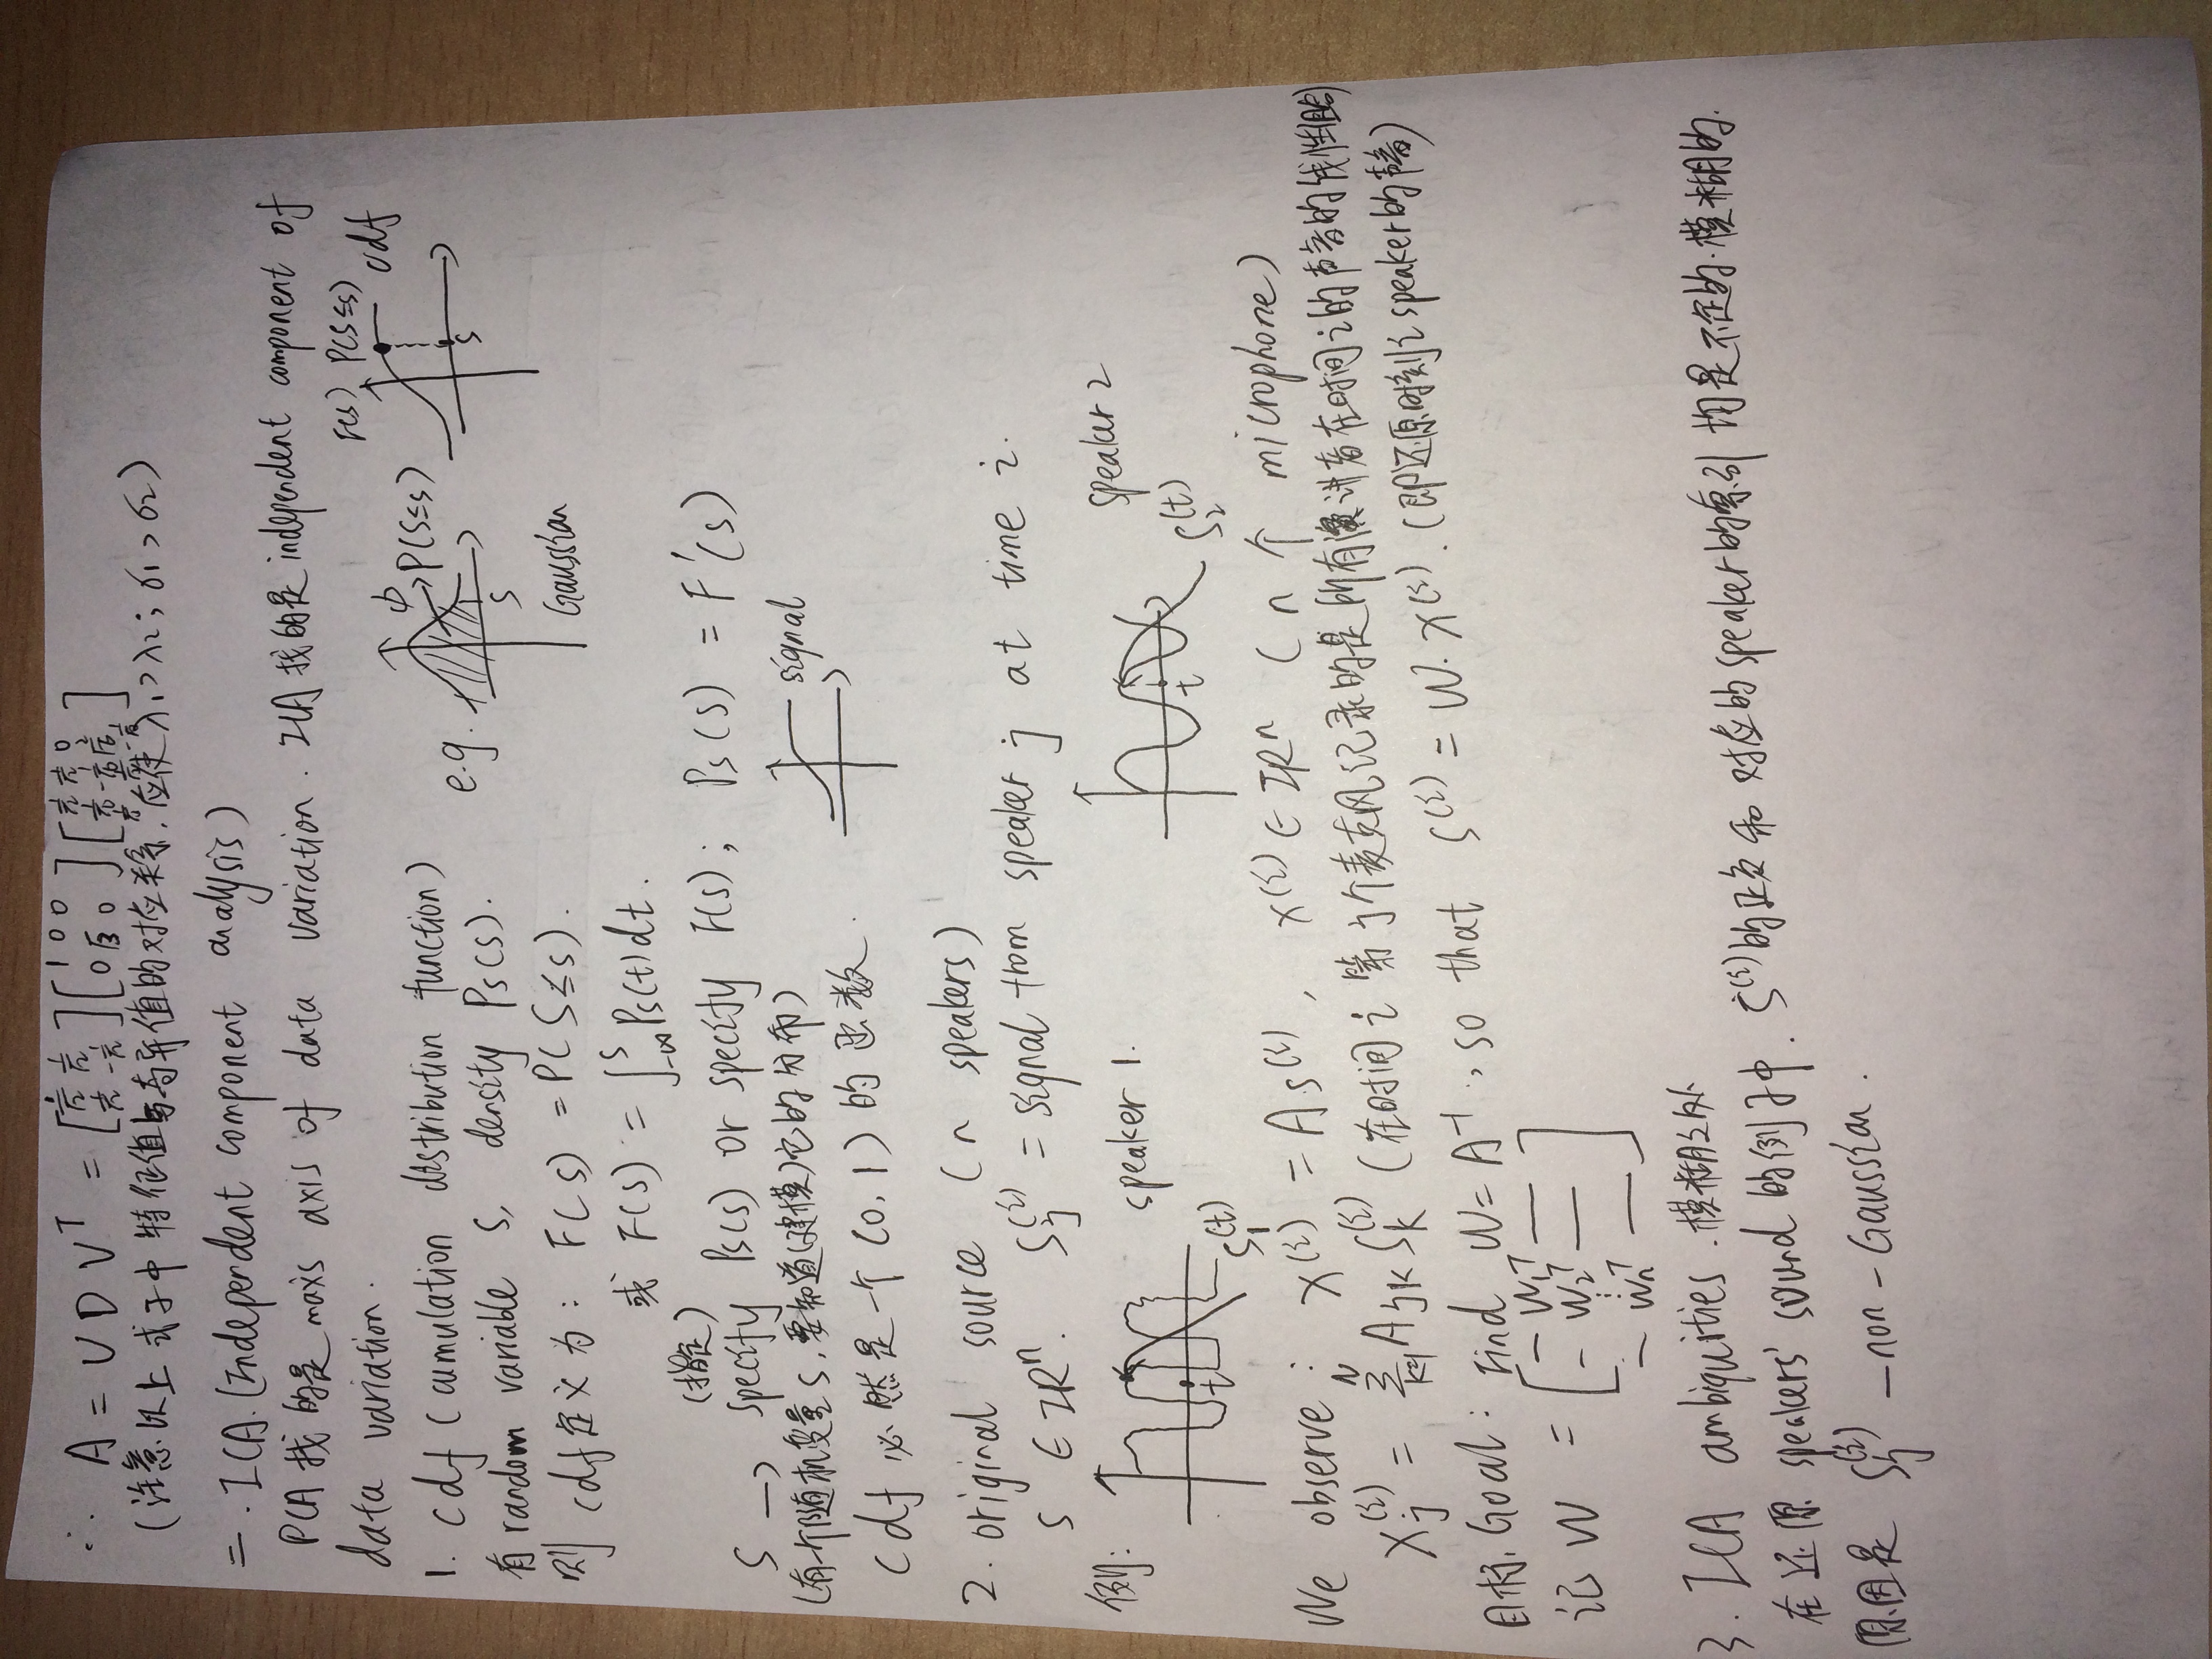 ∴ A = U D Vᵀ = [1/√2 1/√2; 1/√2 -1/√2] [1 0 0; 0 √3 0] [1/√2 1/√2 0; 1/√6 -1/√6 2/√6; 1/√3 -1/√3]
(注意以上式子中特征值与奇异值的对应关系,应使 λ₁>λ₂; σ₁>σ₂)
二. ICA. (Independent component analysis)
PCA 找的是 maxis axis of data variation. ICA 找的是 independent component of
data variation.
1. cdf (cumulation distribution function)
有 random variable S, density Ps(s).
则 cdf定义为: F(s) = P(S≤s).
或 F(s) = ∫_{-∞}^{s} Ps(t)dt.
e.g. P(S≤s) s Gaussian
F(s) P(S≤s) cdf s
(指定)
S → specify Ps(s) or specify F(s); Ps(s) = F′(s)
(有一个随机变量S,要知道(建模)它的分布)
signal
cdf 必然是一个 (0,1) 的函数.
2. original source (n speakers)
s ∈ IRⁿ. S_j^(i) = signal from speaker j at time i.
例: speaker 1. t S_1^(t)
speaker 2 t S_2^(t)
We observe: x^(i) = A s^(i), x^(i) ∈ IRⁿ (n 个 microphone)
x_j^(i) = Σ_{k=1}^{N} A_jk S_k^(i) (在时间 i 第 j 个麦克风记录的是所有演讲者在时间 i 的声音的线性组合)
目标, Goal: Find W = A⁻¹, so that s^(i) = W·x^(i). (即还原时刻 i speaker的声音)
记 W = [— W₁ᵀ —
— W₂ᵀ —
⋮
— Wₙᵀ —]
3. ICA ambiquities. 模糊之处
在还原 speakers' sound 的例子中. s^(i)的正负和对应的speaker的索引均是不定的.模糊的.
原因是 S_j^(i) — non - Gaussian.